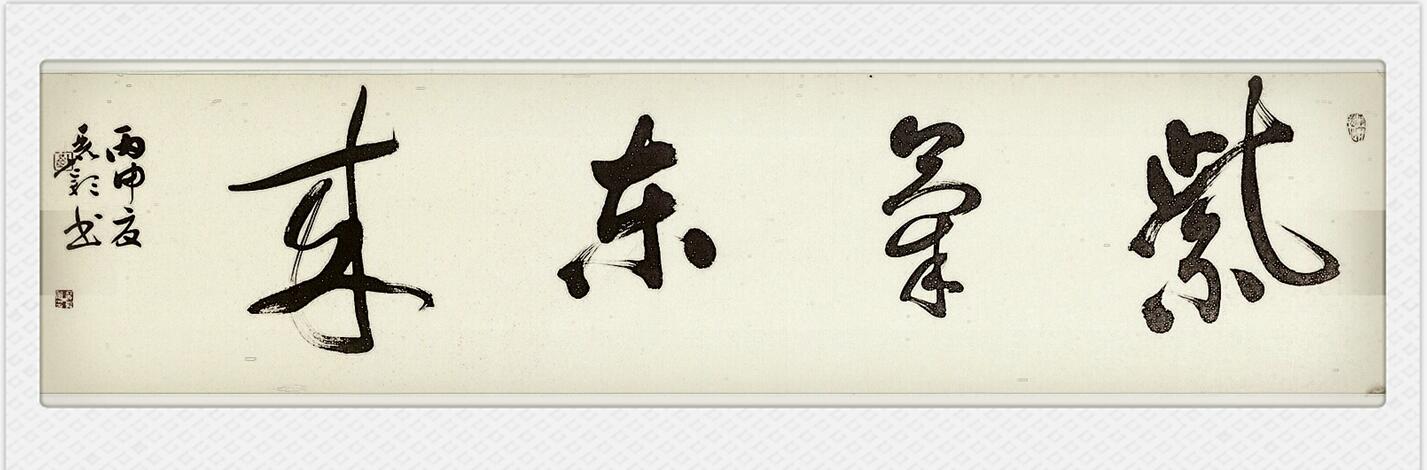 紫氣东来
丙申夏
书